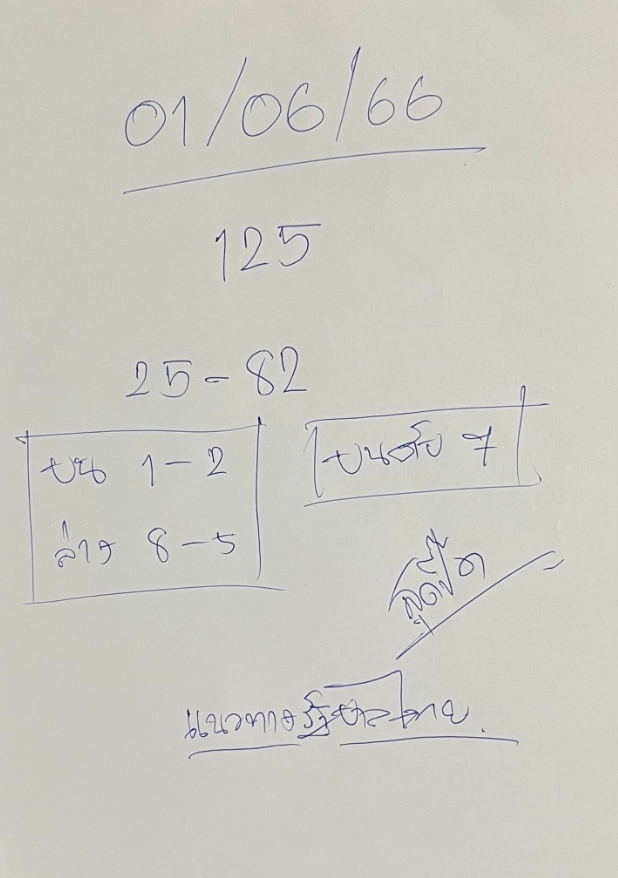 01/06/66
125
25-82
บน 1-2
ล่าง 8-5
บนดับ 7
แนวทางรัฐบาลไทย.